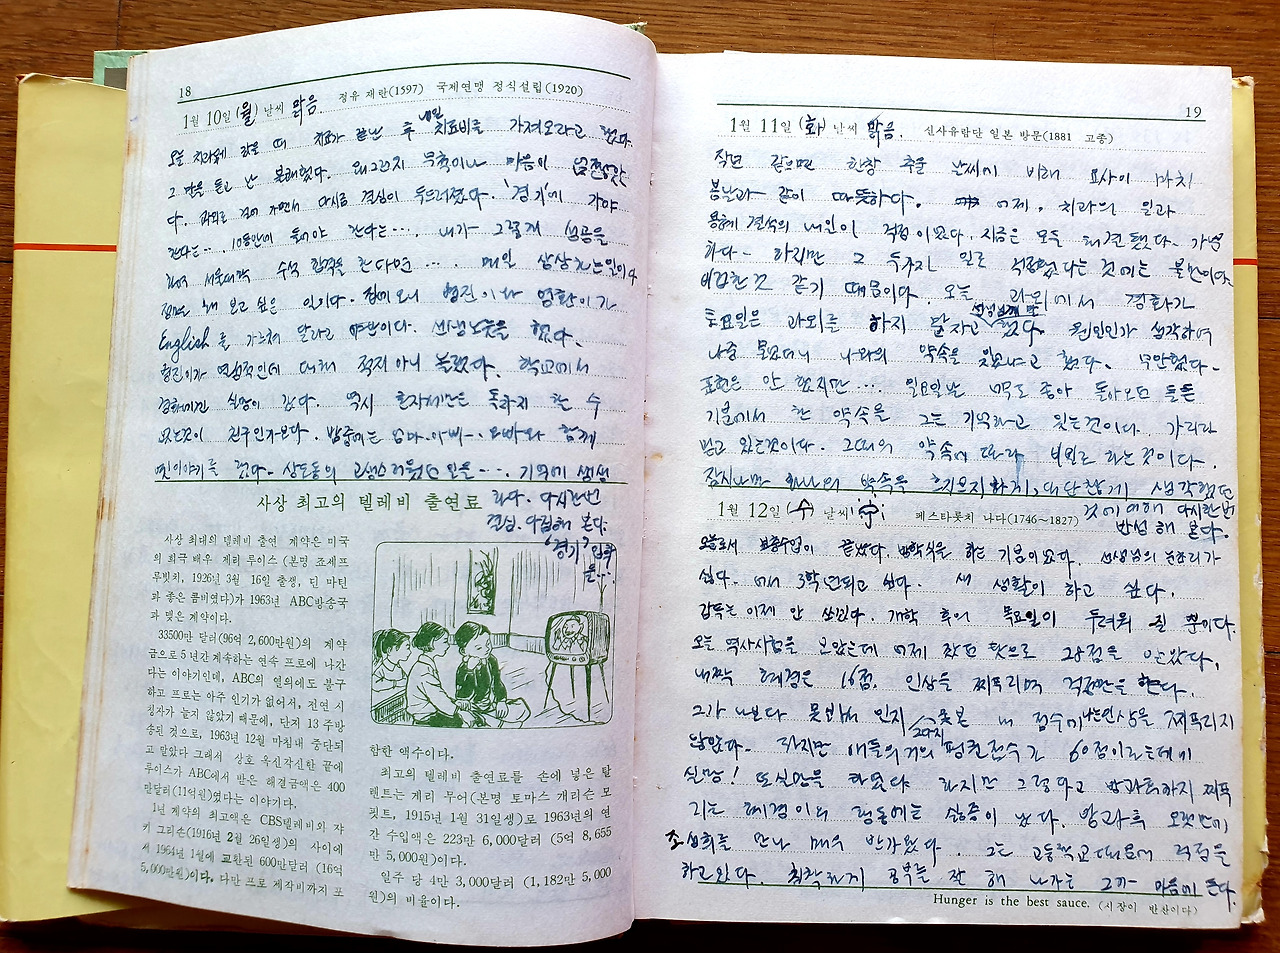 18
1월 10일 (월) 날씨 맑음 정유 재란(1597) 국제연맹 정식설립(1920)
오늘 치과에 갔을 때 치료가 끝난 후 내일 치료비를 가져오라고 했다.
그 말을 듣고 난 불쾌했다. 왜그런지 무척이나 마음이
다. 과외로 걸어 가면서 다시금 결심이 두드러졌다. '경기'에 가야
한다는…. 10등안에 들어야 한다는…. 내가 그렇게 성공을
해서 서울대학 수석 합격을 한다면…. 매일 상상하는 일이다
해 보고 싶은 일이다. 집에 오니 형진이와 영환이가
English를 가르쳐 달라고 야단이다. 선생노릇을 했다.
형진이가 열성적인데 대해 적지 아니 놀랐다. 학교에서
경화에겐 실망이 갔다. 역시 혼자서만은 독하지 할 수
없는것이 친구인가보다. 밤중에는 엄마. 아빠…. 오빠와 함께
옛이야기를 했다. 상도동의 고생스러웠던 일을…. 기억에 생생
하다. 다시한번
결심. 다짐해 본다.
'경기' 입학
을…
사상 최고의 텔레비 출연료
사상 최대의 텔레비 출연 계약은 미국
의 희극 배우 제리 루이스 (본명 죠세프
루빗치, 1926년 3월 16일 출생, 딘 마틴
과 좋은 콤비였다)가 1963년 ABC방송국
과 맺은 계약이다.
33500만 달러(96억 2,600만원)의 계약
금으로 5년간 계속하는 연속 프로에 나간
다는 이야기인데, ABC의 열의에도 불구
하고 프로는 아주 인기가 없어서, 전연 시
청자가 늘지 않았기 때문에, 단지 13주방
송된 것으로, 1963년 12월 마침내 중단되
고 말았다 그래서 상호 옥신각신한 끝에
루이스가 ABC에서 받은 해결금액은 400
만달러(11억원)였다는 이야기다.
1년 계약의 최고액은 CBS텔레비와 쟈
키 그리슨(1916년 2월 26일생)의 사이에
서 1964년 1월에 교환된 600만달러 (16억
5,000만원)이다. 다만 프로 제작비까지 포
함한 액수이다.
최고의 텔레비 출연료를 손에 넣은 탈
렌트는 게리 무어(본명 토마스 개리슨 모
핏트, 1915년 1월 31일생)로 1963년의 연
간 수입액은 223만 6,000달러 (5억 8,655
만 5,000원)이다.
일주 당 4만 3,000달러 (1,182만 5,000
원)의 비율이다.
19
1월 11일 (화) 날씨 맑음. 신사유람단 일본 방문(1881 고종)
작년 같으면 한창 추울 날씨에 비해 요사이 마치
봄날과 같이 따뜻하다. 어제. 치과의 일과
결석의 내일이 걱정이었다. 지금은 모두 해결됐다. 가능
하다. 하지만 그 두가지 일로 걱정했다는 것에는 불만이다.
비겁한것 같기 때문이다. 오늘 과외에서 경화가
토요일은 과외를 하지 말자고 선생님께 말했다. 원인인가 생각하여
나중 물었더니 나와의 약속을 잊었냐고 했다. 무안했다.
표현은 안 했지만…. 일요일날 너무도 좋아 돌아오던 들뜬
기분에서 한 약속을 그는 기억하고 있는것이다. 기다리
믿고 있는것이다. 그때의 약속에 따라 내일로 하는 것이다.
잠시나마 하나의 약속을 흐지부지하게, 대단찮게 생각했던
것에 대해 다시한번
반성 해 본다.
1월 12일 (수) 날씨 페스타롯치 나다(1746~1827)
오늘로서 보충수업이 끝났다. 방학식을 하는 기분이었다. 선생님의 잔소리가
싫다. 어서 3학년되고 싶다. 새 생활이 하고 싶다.
감독는 이제 안 쓰인다. 개학 후의 목요일이 두려워 질 뿐이다.
오늘 역사시험을 보았는데 어제 잤던 탓으로 28점을 맞았다.
내짝 혜경은 16점. 인상을 찌푸리며 걱정만을 한다.
그가 나보다 못봐서 인지 28점 못본 내 점수이나는 인상을 찌푸리지
않았다. 하지만 애들의 거의 평균점수가 60점이라는데에
실망! 또 실망을 하였다 하지만 그렇다고 방과후까지 찌푸
리는 혜경이의 행동에는 싫증이 났다. 방과후 오랫만에
조성희를 만나 매우 반가웠다. 그는 고등학교때문에 걱정을
하고있다. 침착하게 공부를 잘 해 나가는 그가 마음에 든다.
Hunger is the best sauce. (시장이 반찬이다)